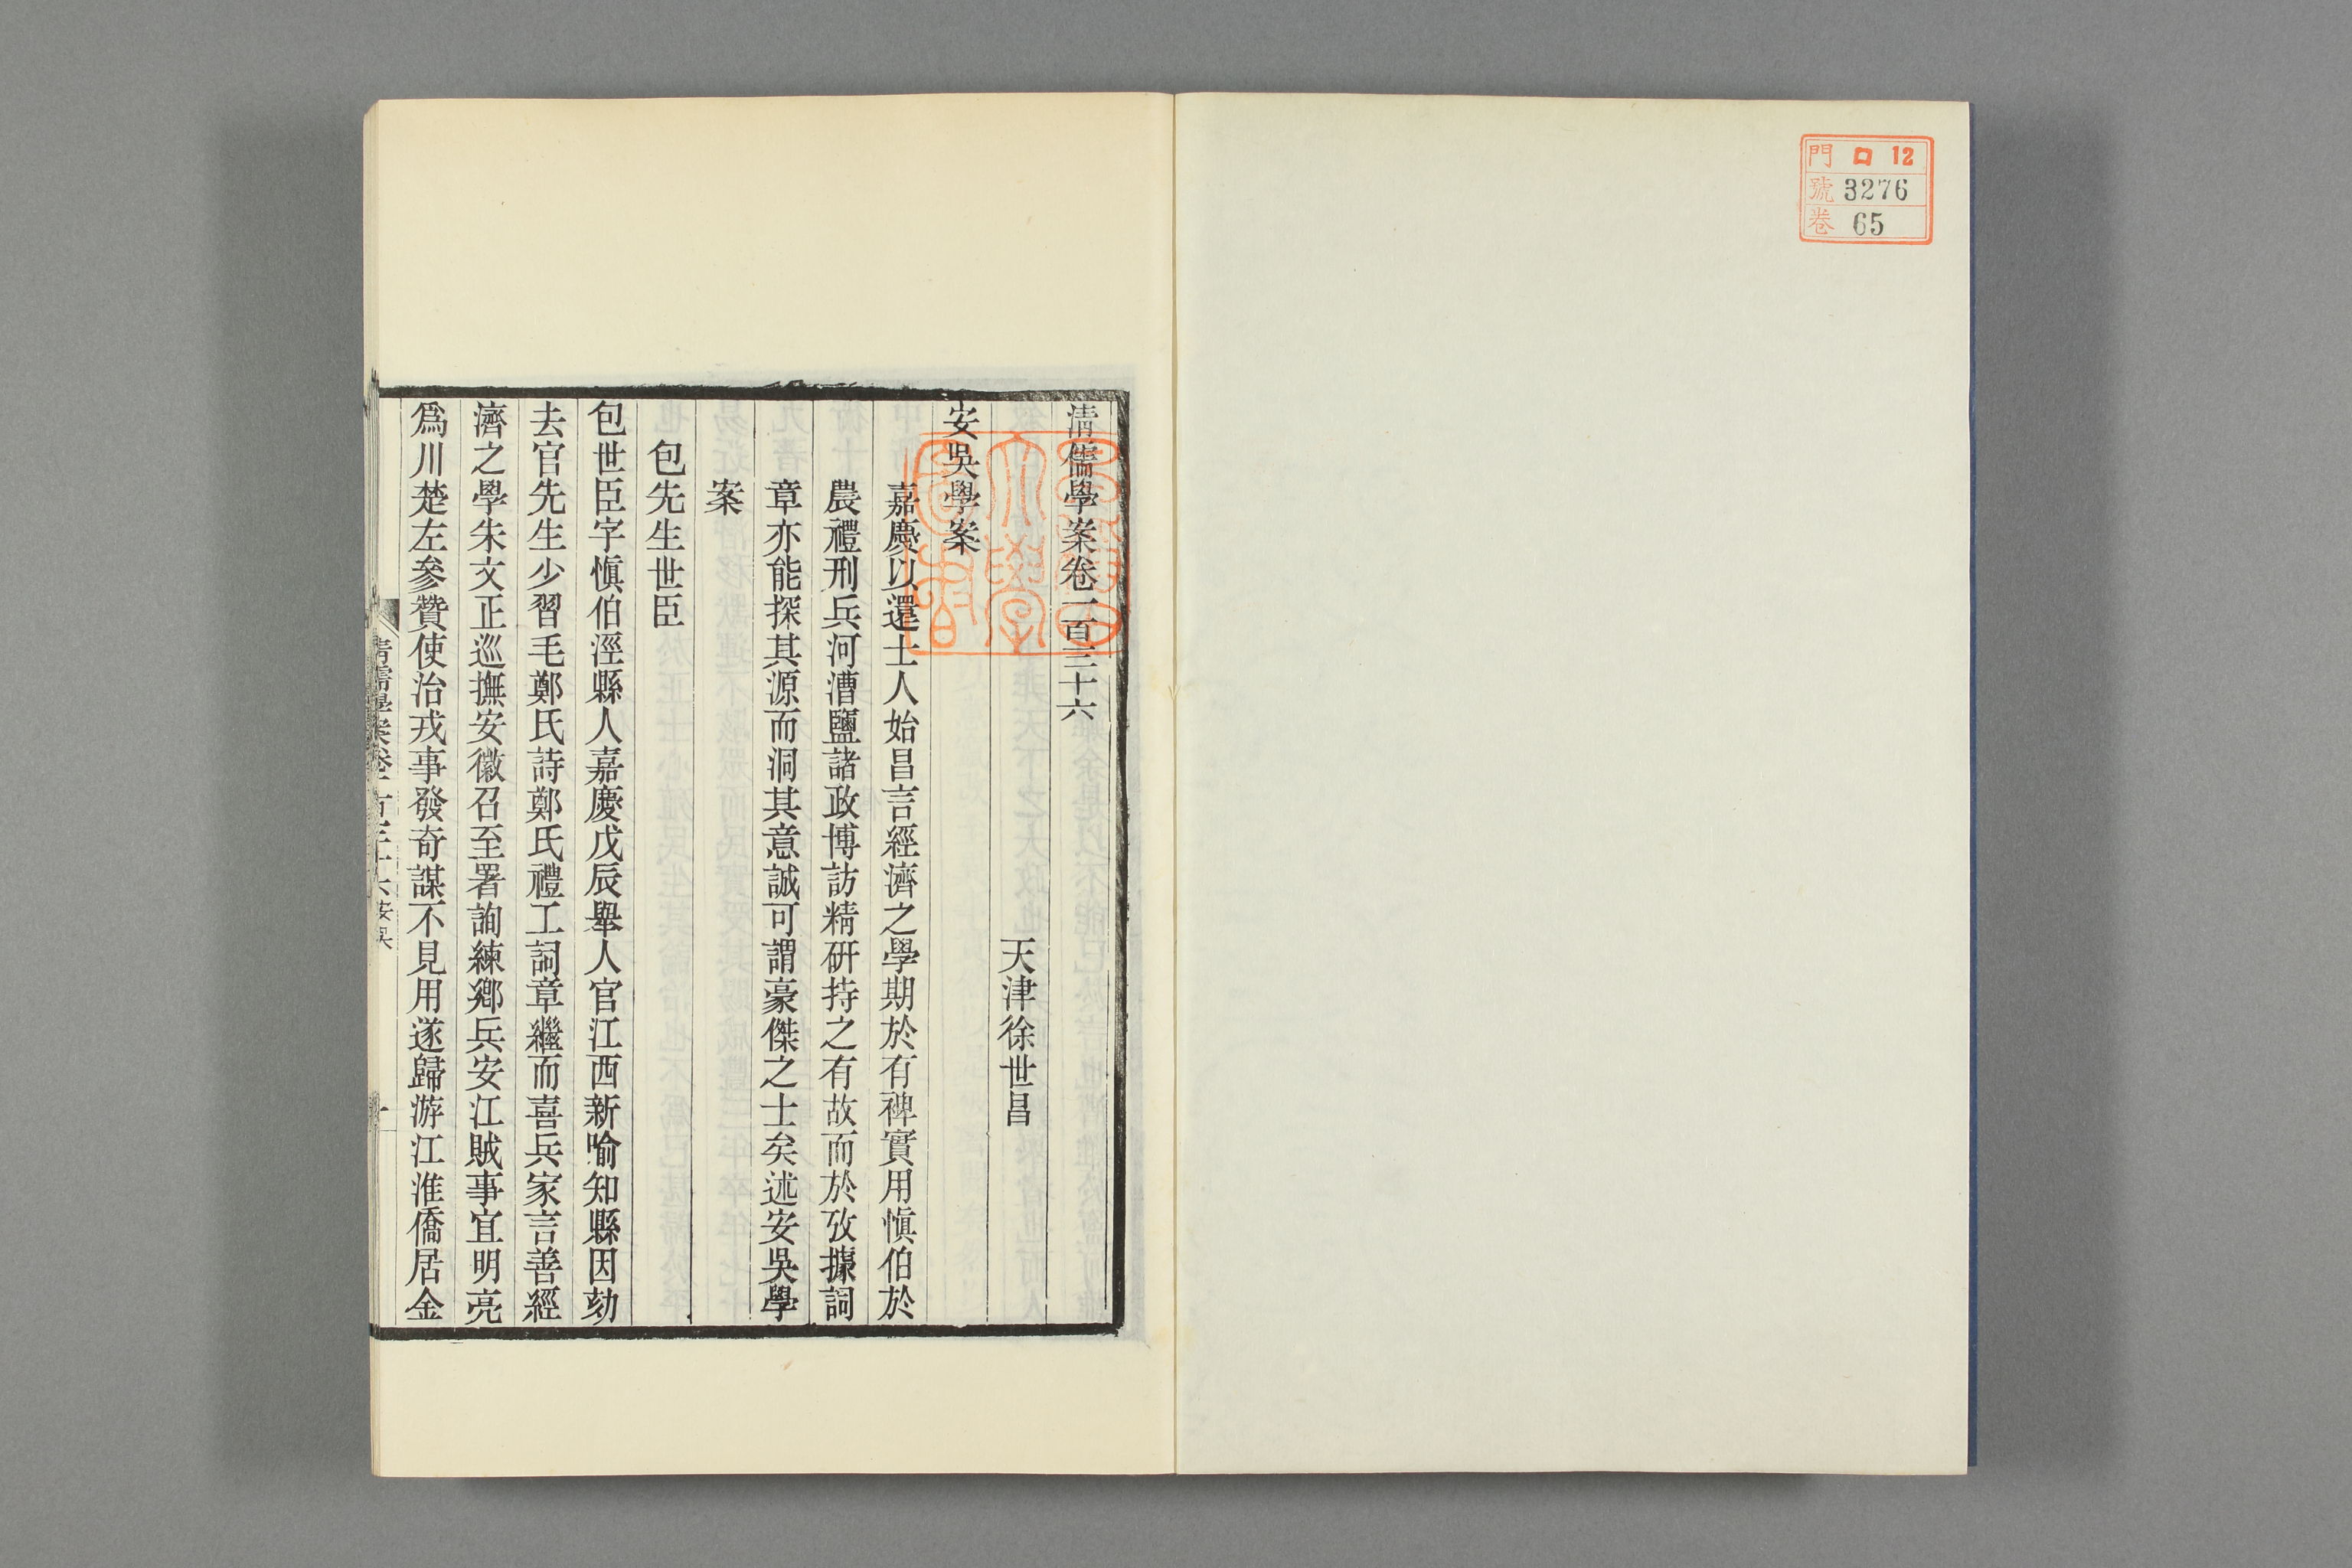 門 ロ 12
號 3276
卷 65
清儒學案卷一百三十六
天津徐世昌
安吳學案
嘉慶以還士人始昌言經濟之學期於有裨實用愼伯於
農禮刑兵河漕鹽諸政博訪精硏持之有故而於攷據詞
章亦能探其源而洞其意誠可謂豪傑之士矣述安吳學
案
包先生世臣
包世臣字愼伯涇縣人嘉慶戊辰舉人官江西新喻知縣因劾
去官先生少習毛鄭氏詩鄭氏禮工詞章繼而喜兵家言善經
濟之學朱文正巡撫安徽召至署詢練鄉兵安江賊事宜明亮
爲川楚左參贊使治戎事發奇謀不見用遂歸游江淮僑居金
清儒學案卷一百三十六 安吳
一